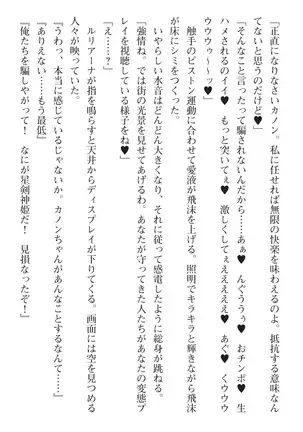 「正直になりなさいカノン。私に任せれば無限の快楽を味わえるのよ。抵抗する意味なん
てないと思うのだけど♥」
「そんなこと言ったって騙されないんだから……あぁ♥　んぐううぅ♥　おチンポ♥　生
ハメされるのイイ♥　もっと突いてぇ♥　激しくしてぇえええ♥　あぐ♥　くウウウ
ウウウゥ～～ッ♥」
触手のピストン運動に合わせて愛液が飛沫を上げる。照明でキラキラと輝きながら飛沫
が床にシミをつくった。
いやらしい水音はどんどん大きくなり、それに従って感電したように総身が跳ねる。
「強情ね。では街の光景を見せてあげるわ。あなたが守ってきた人たちがあなたの変態プ
レイを視聴している様子をね♥」
「え……？」
ルリアーナが指を鳴らすと天井からディスプレイが下りてくる。画面には空を見つめる
人々が映っていた。
「うわっ、本当に感じているじゃないか。カノンちゃんがあんなことするなんて……」
「ありえない……もう最低」
「俺たちを騙しやがって！　なにが星剣神姫だ！　見損なったぞ！」